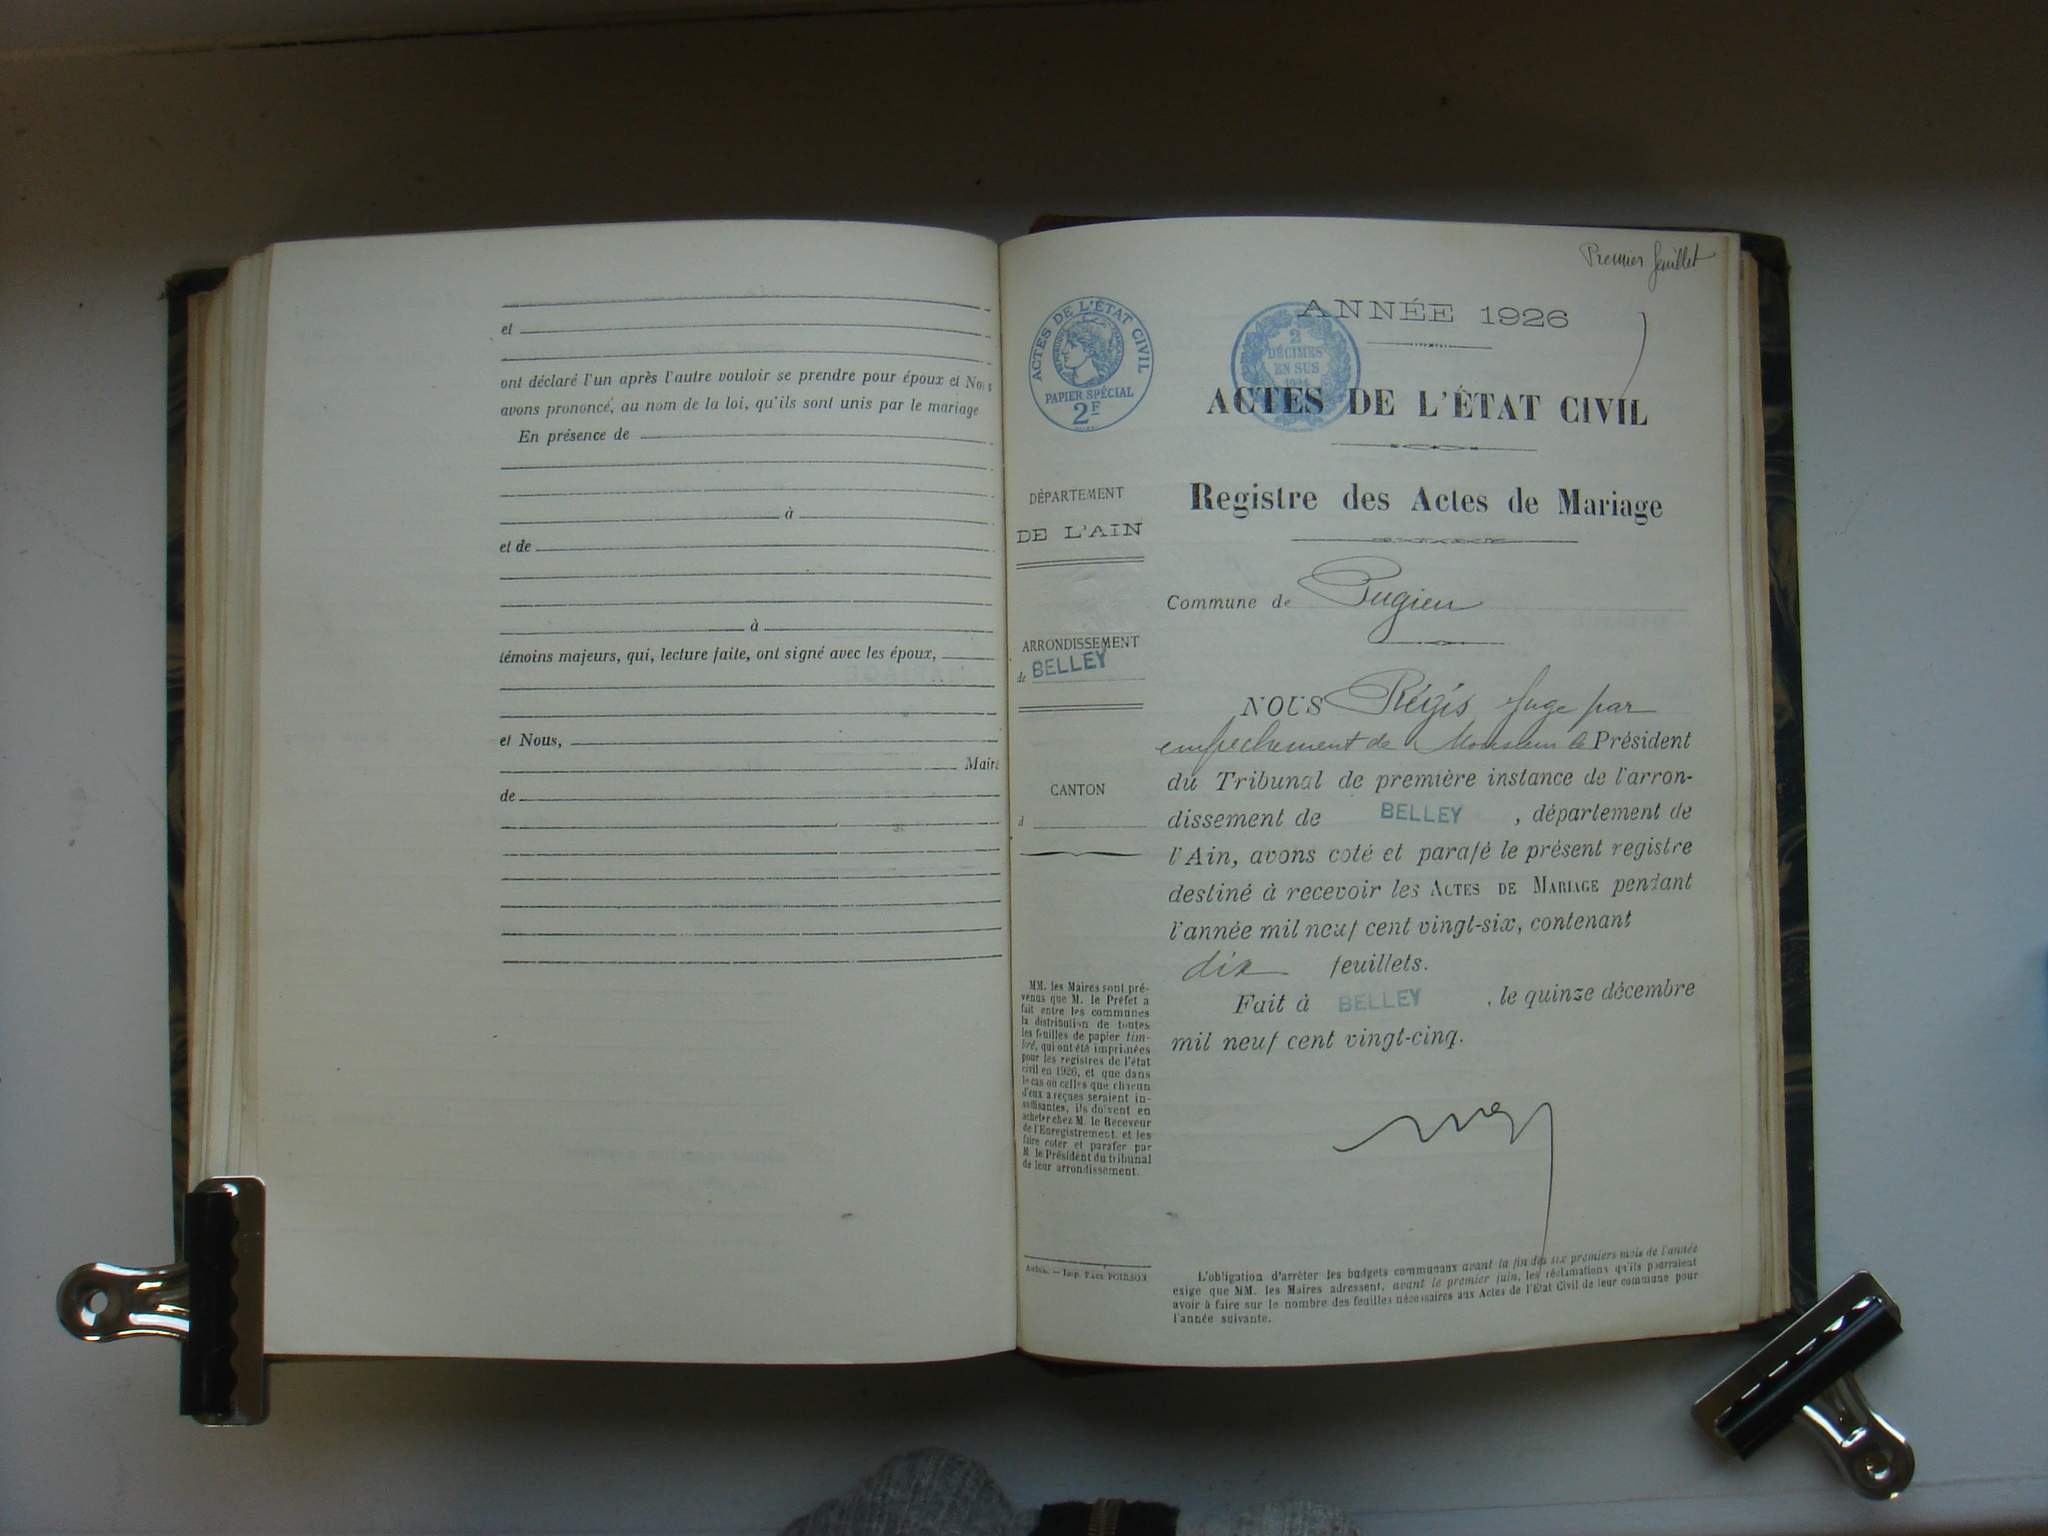 et
ont déclaré l'un après l'autre vouloir se prendre pour époux et Nous
avons prononcé, au nom de la loi, qu'ils sont unis par le mariage
En présence de
à
et de
à
témoins majeurs, qui, lecture faite, ont signé avec les époux,
et Nous,
Maire
de
Premier feuillet
ACTES DE L'ÉTAT CIVIL
PAPIER SPÉCIAL
2F
2
DÉCIMES
EN SUS
ANNÉE 1926
ACTES DE L'ÉTAT CIVIL
Registre des Actes de Mariage
DÉPARTEMENT
DE L'AIN
ARRONDISSEMENT
de BELLEY
CANTON
d
MM. les Maires sont pré-
venus que M. le Préfet a
fait entre les communes
la distribution de toutes
les feuilles de papier tim-
bré, qui ont été imprimées
pour les registres de l'état
civil en 1926, et que dans
le cas où celles que chacun
d'eux a reçues seraient in-
suffisantes, ils doivent en
acheter chez M. le Receveur
de l'Enregistrement, et les
faire coter et parafer par
M. le Président du tribunal
de leur arrondissement.
Imp. Paul POIRSON
Commune de Pugieu
NOUS Régis Juge par
empêchement de Monsieur le Président
du Tribunal de première instance de l'arron-
dissement de BELLEY, département de
l'Ain, avons coté et parafé le présent registre
destiné à recevoir les ACTES DE MARIAGE pendant
l'année mil neuf cent vingt-six, contenant
dix feuillets.
Fait à BELLEY, le quinze décembre
mil neuf cent vingt-cinq.
L'obligation d'arrêter les budgets communaux avant la fin des six premiers mois de l'année
exige que MM. les Maires adressent, avant le premier juin, les réclamations qu'ils pourraient
avoir à faire sur le nombre des feuilles nécessaires aux Actes de l'Etat Civil de leur commune pour
l'année suivante.